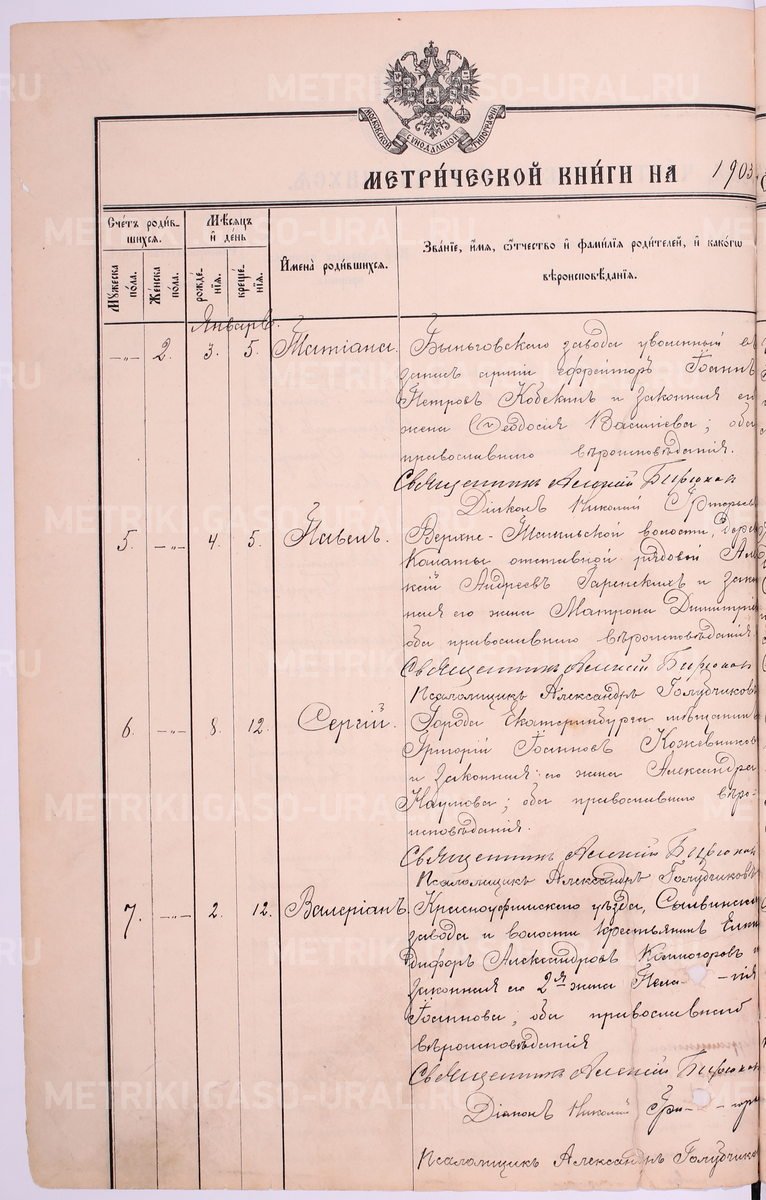 МОСКОВСКОЙ СѴНОДАЛЬНОЙ ТИПОГРАФІИ
МЕТРИ́ЧЕСКОЙ КНИ́ГИ НА 1903.
Сче́тъ роди́в-
шихся.
Мѣ́сяцъ
и҆ де́нь
И҆мена̀ роди́вшихся.
Зва́нїе, и҆́мя, ѻ҆́тчество и҆ фами́лїя роди́телей, и҆ како́гѡ
вѣроисповѣ́данїя.
Мꙋ́жеска
по́ла.
Же́нска
по́ла.
рожде́-
нїя.
креще́-
нїя.
Январь.
—„— 2. 3. 5. Татіана.
Быньговскаго завода уволенный въ
запасъ арміи ефрейторъ Іоаннъ
Петровъ Кобекинъ и законная его
жена Ѳеодосія Василіева; оба
православнаго вѣроисповѣданія.
Священникъ Алексій Бирюков
Діаконъ Николай Григорьев
5. —„— 4. 5. Павелъ.
Верхне-Тагильской волости, дере
отставной рядовой Але
ксій Андреевъ и зако
нная его жена Матрона Димитріе
оба православнаго вѣроисповѣданія.
Священникъ Алексій Бирюков
Псаломщикъ Александръ Голубчиковъ
6. —„— 8. 12. Сергій.
Города Екатеринбурга мѣщанинъ
Григорій Іоанновъ Кожевников
и законная его жена Александра
Наумова; оба православнаго вѣро-
исповѣданія.
Священникъ Алексій Бирюков
Псаломщикъ Александръ Голубчиковъ
7. —„— 2. 12. Валеріанъ.
Красноуфимскаго уѣзда, Сылвинскаго
завода и волости крестьянинъ Елпи
дифоръ Александровъ и
законная его 2я жена Пела - гія
Іоаннова; оба православнаго
вѣроисповѣданія
Священникъ Алексій Бирюков
Діаконъ Николай Гри - горь
Псаломщикъ Александръ Голубчико
METRIKI.GASO-URAL.RU